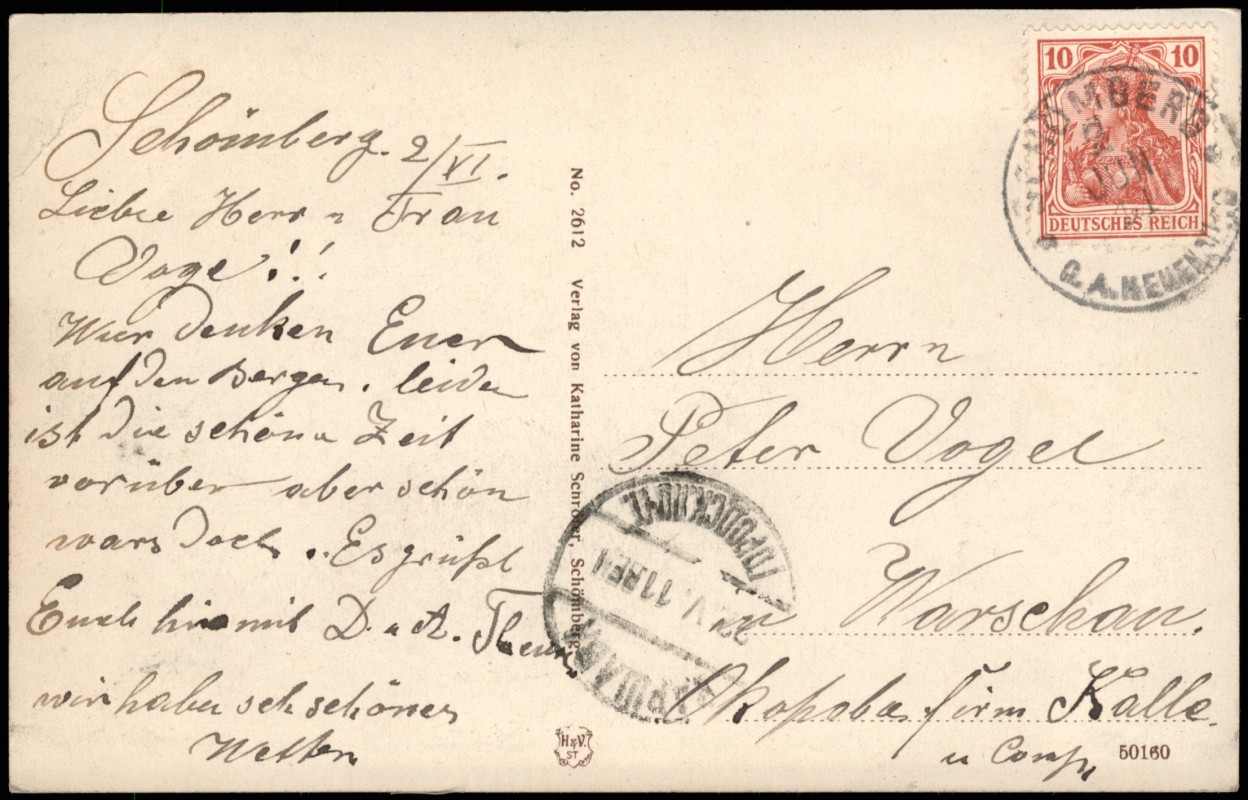 Schömberg. 2/VI.
Liebe Herr n Frau
Voge!!!
Wier denken Euer
auf den Bergen. leider
ist die schöne Zeit
vorüber aber schön
wars doch. Es grüßt
Euch hiermit D. u A.
wir haben seh schönes
Wetter
No. 2612 Verlag von Katharine Schröter, Schömberg.
H&V.
ST
10 10
DEUTSCHES REICH
SCHÖMBERG
2
JUN
O. A. NEUENBÜRG
Herrn
Peter Vogel
in Warschau.
firm Kalle
u Comp,
50160
ВАРШАВА